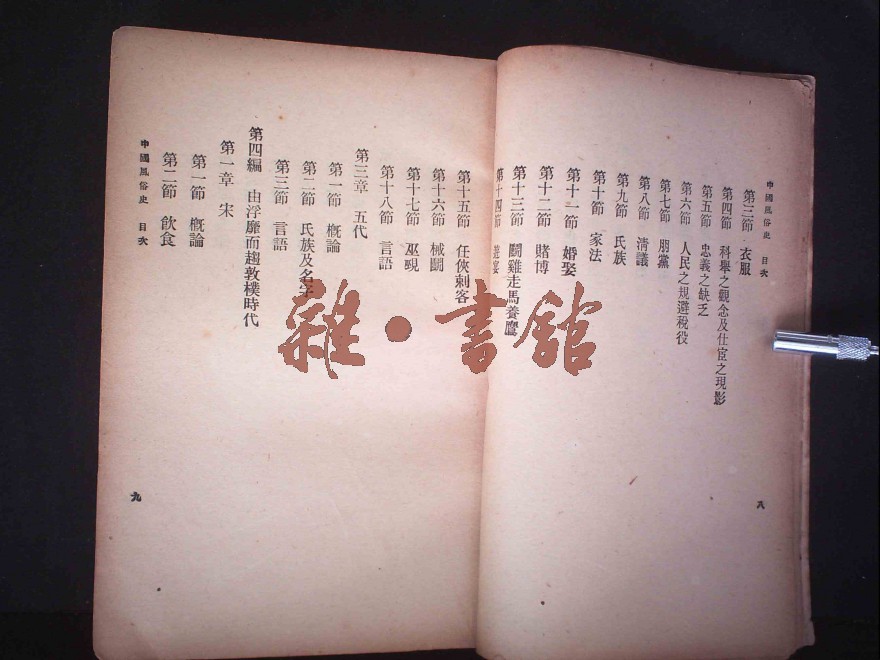 中國風俗史 目次
第三節 衣服
第四節 科舉之觀念及仕宦之現影
第五節 忠義之缺乏
第六節 人民之規避稅役
第七節 朋黨
第八節 清議
第九節 氏族
第十節 家法
第十一節 婚娶
第十二節 賭博
第十三節 鬭雞走馬養鷹
第十四節 遊宴
八
第十五節 任俠刺客
第十六節 械鬭
第十七節 巫覡
第十八節 言語
第三章 五代
第一節 概論
第二節 氏族及名字
第三節 言語
第四編 由浮靡而趨敦樸時代
第一章 宋
第一節 概論
第二節 飲食
中國風俗史 目次
九
雜·書館